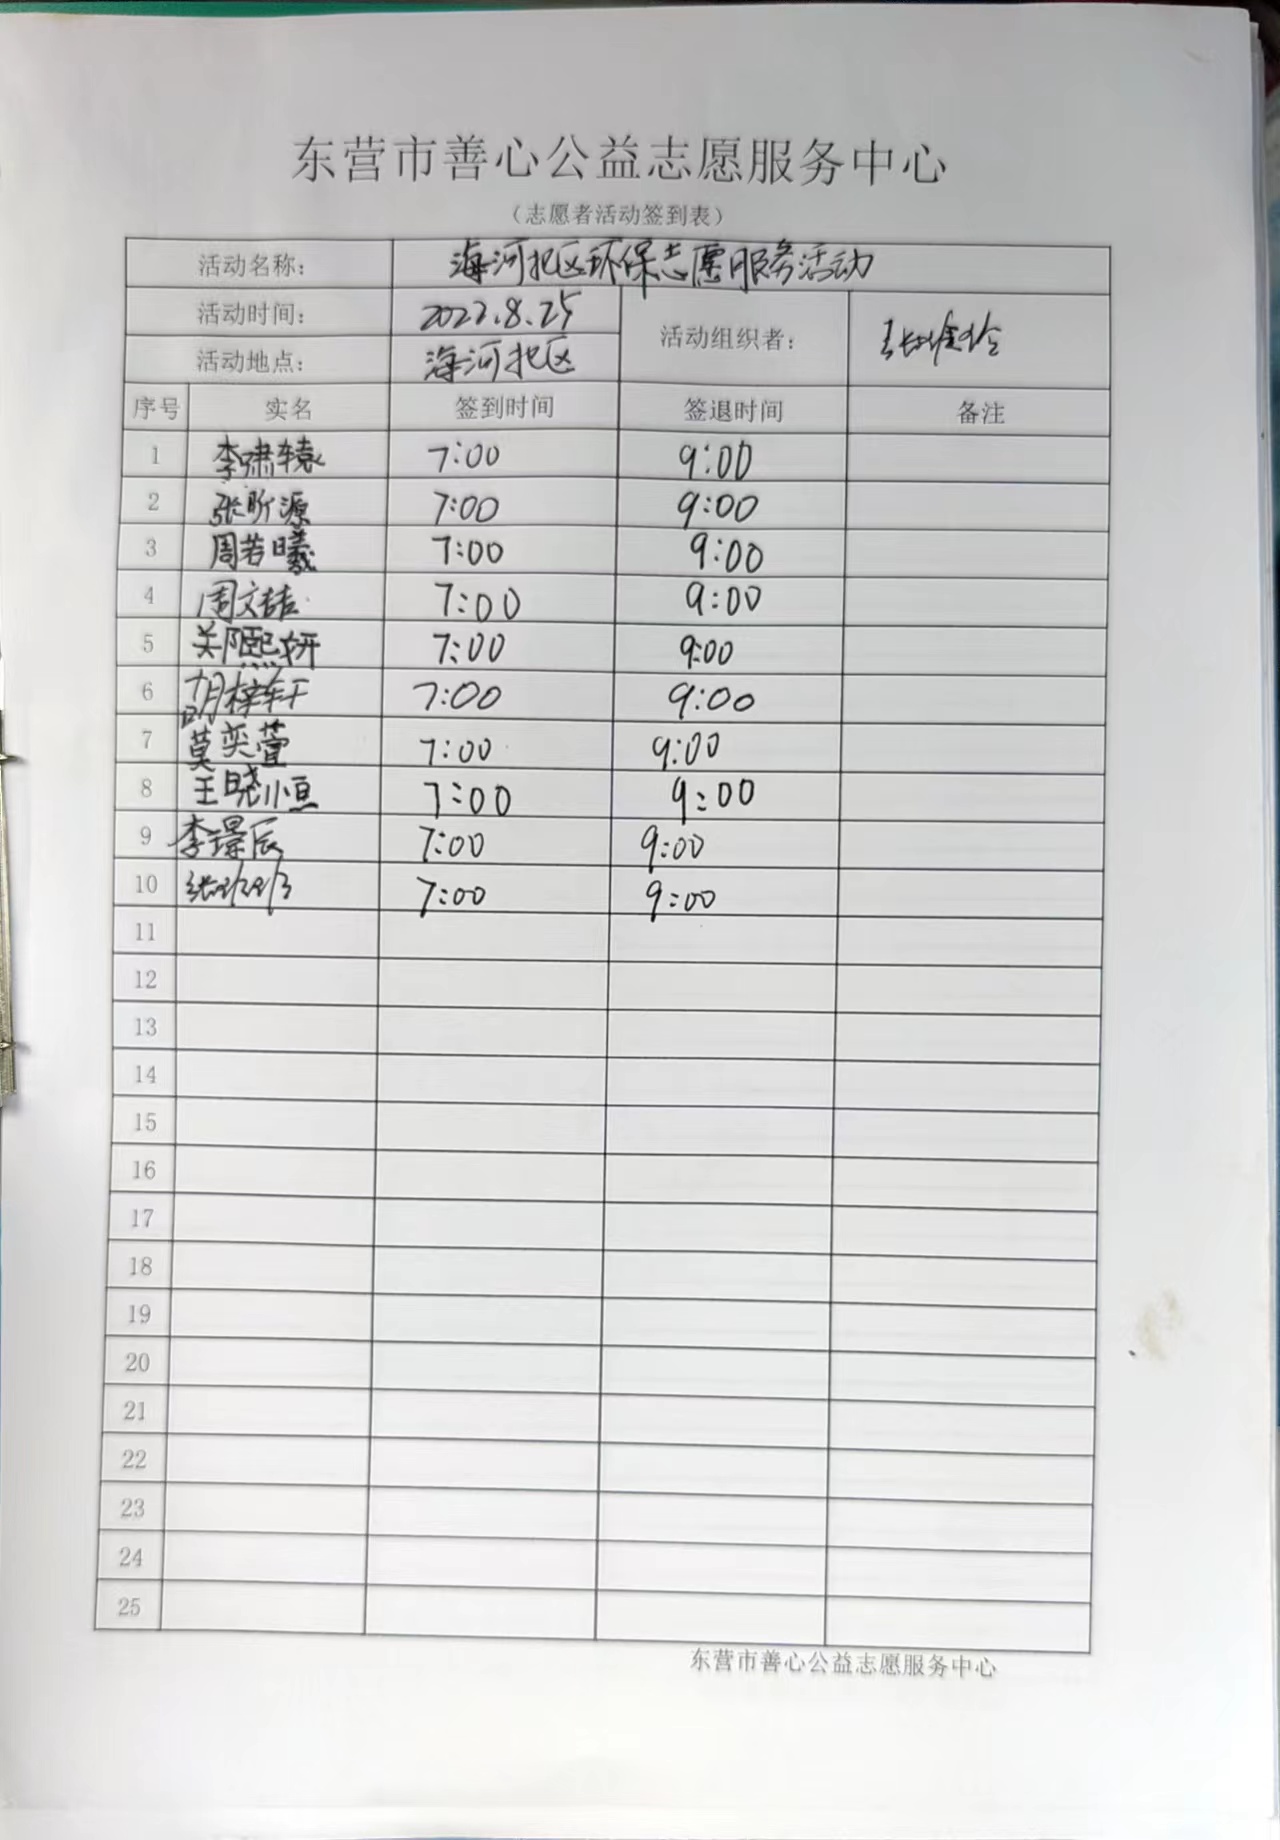 东营市善心公益志愿服务中心
（志愿者活动签到表）
活动名称： 海河北区环保志愿服务活动
活动时间： 2022.8.25 活动组织者：
活动地点： 海河北区
序号 实名 签到时间 签退时间 备注
1 李啸辕 7:00 9:00
2 张昕源 7:00 9:00
3 周若曦 7:00 9:00
4 周文喆 7:00 9:00
5 关熙妍 7:00 9:00
6 胡梓轩 7:00 9:00
7 莫奕萱 7:00 9:00
8 王晓 7:00 9:00
9 李璟辰 7:00 9:00
10 7:00 9:00
11
12
13
14
15
16
17
18
19
20
21
22
23
24
25
东营市善心公益志愿服务中心